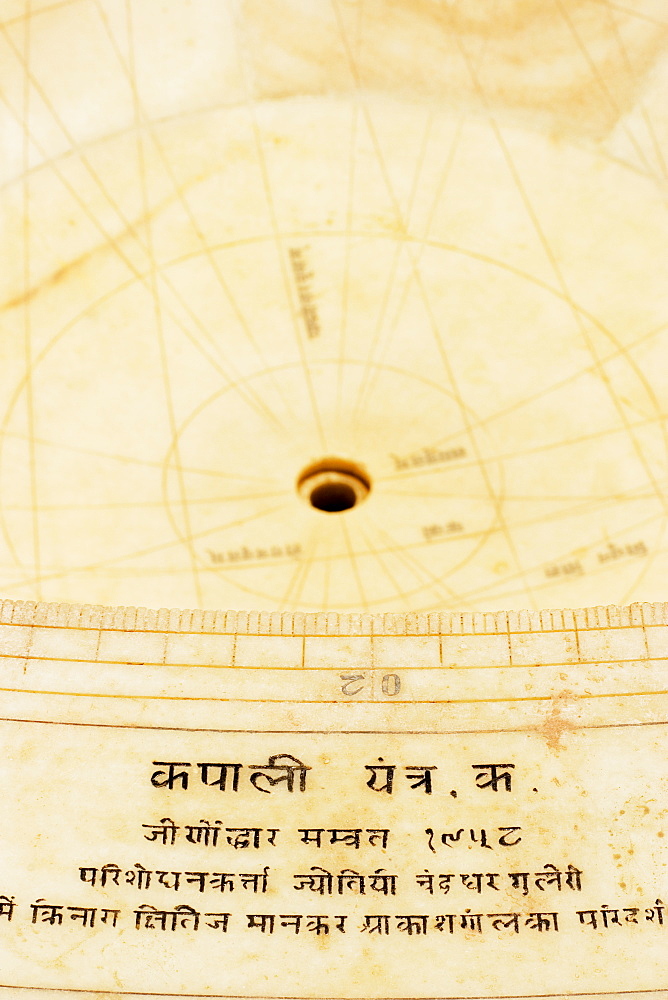 २०
कपाली यंत्र . क .
जीर्णोद्धार सम्वत १९५८
परिशोधनकर्त्ता ज्योतिर्या चंद्रधर गुलेरी
में क्रिनारा क्षितिज मानकर प्राकाशगोलका परिदर्श